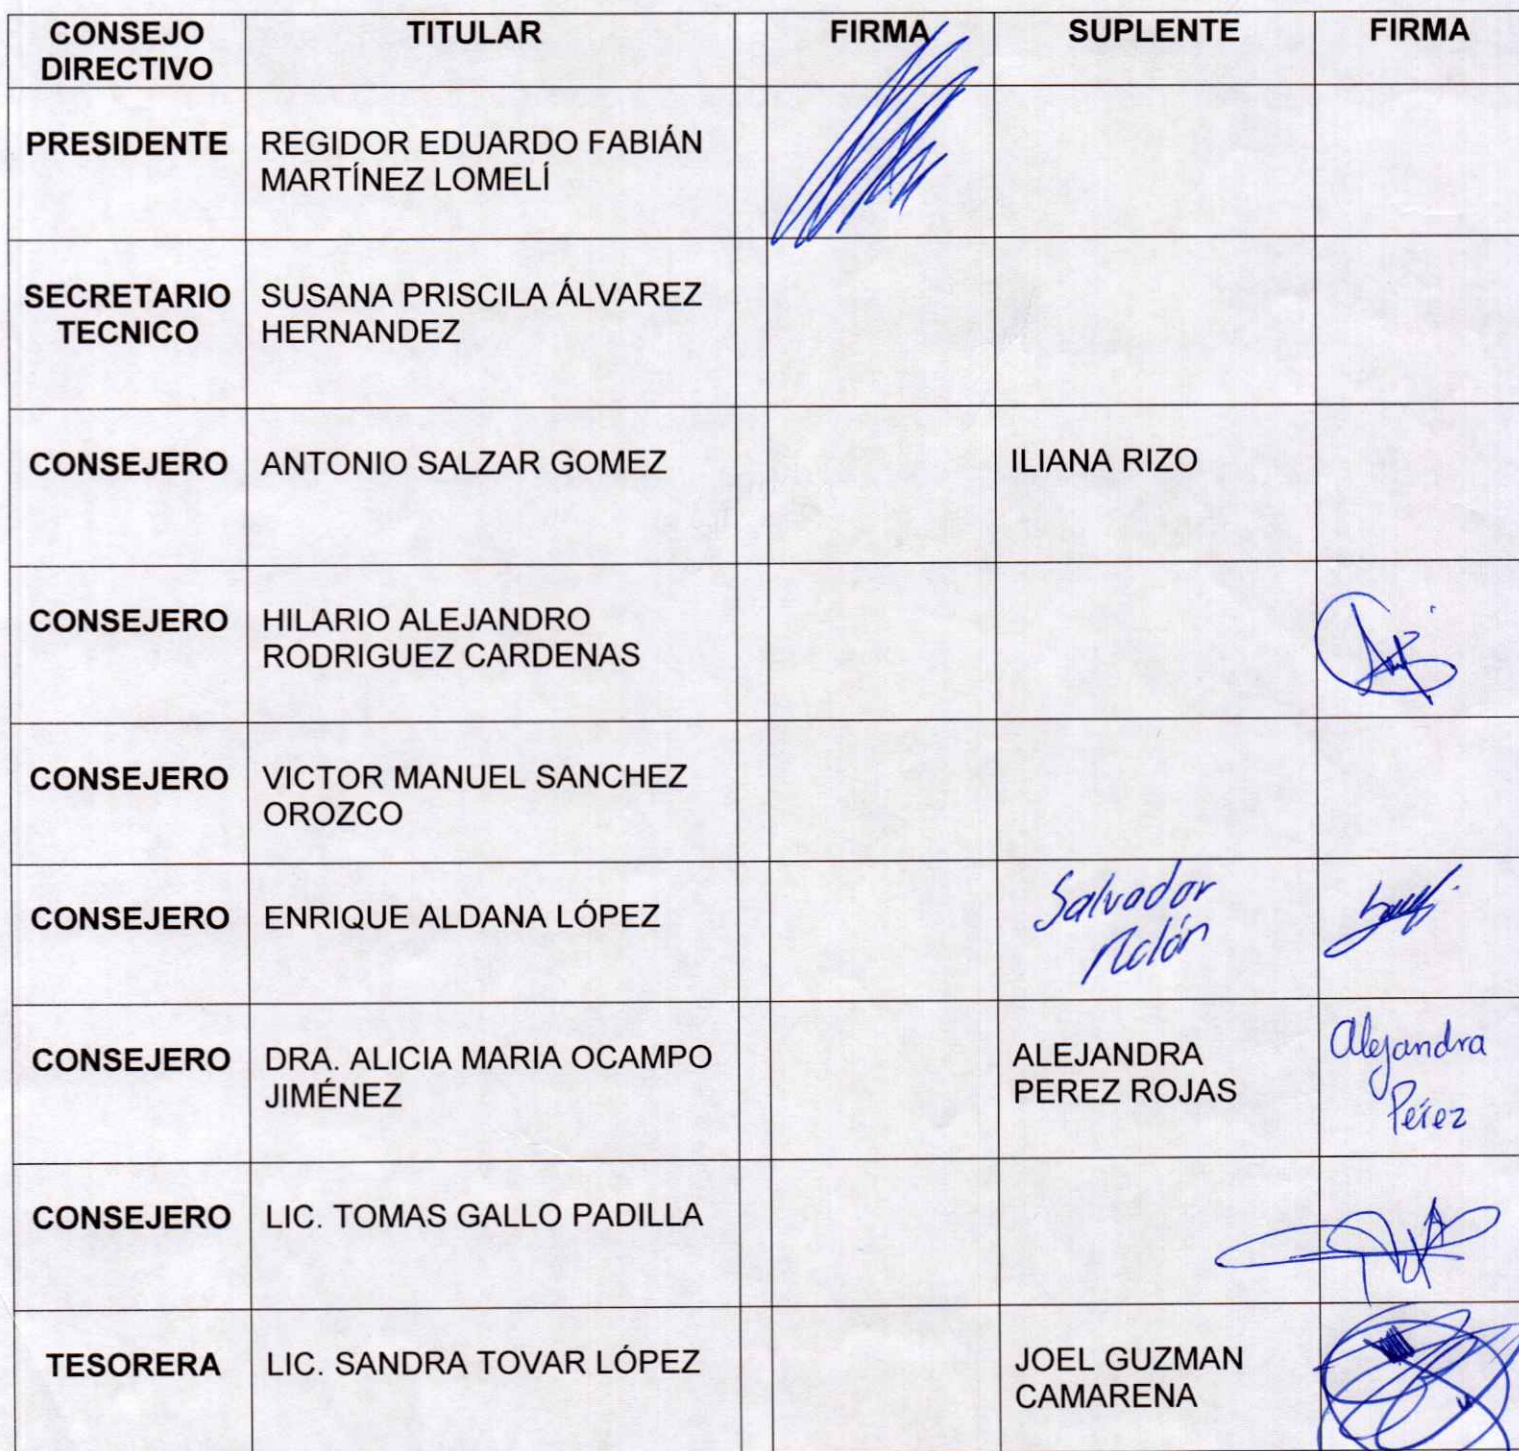 CONSEJO DIRECTIVO TITULAR FIRMA SUPLENTE FIRMA
PRESIDENTE REGIDOR EDUARDO FABIÁN
MARTÍNEZ LOMELÍ
SECRETARIO TECNICO SUSANA PRISCILA ÁLVAREZ
HERNANDEZ
CONSEJERO ANTONIO SALZAR GOMEZ ILIANA RIZO
CONSEJERO HILARIO ALEJANDRO
RODRIGUEZ CARDENAS
CONSEJERO VICTOR MANUEL SANCHEZ
OROZCO
CONSEJERO ENRIQUE ALDANA LÓPEZ Salvador
CONSEJERO DRA. ALICIA MARIA OCAMPO
JIMÉNEZ
ALEJANDRA
PEREZ ROJAS
Alejandra
Pérez
CONSEJERO LIC. TOMAS GALLO PADILLA
TESORERA LIC. SANDRA TOVAR LÓPEZ
JOEL GUZMAN
CAMARENA